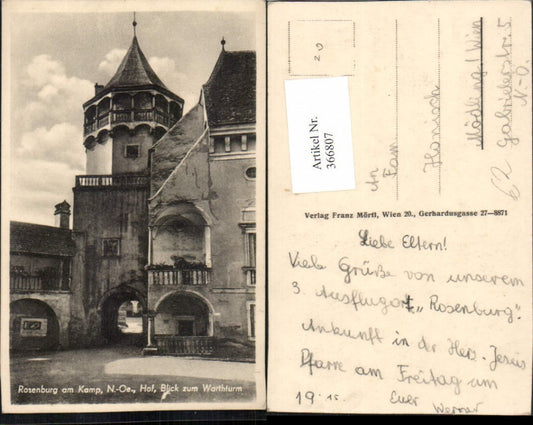 Rosenburg am Kamp, N.-Oe., Hof, Blick zum Wartturm
20
Artikel Nr.
366807
An Fam.
Hanisch
Mödling / Wien
62 Gabrielerstr. 5
N-Ö.
Verlag Franz Mörtl, Wien 20., Gerhardusgasse 27—8871
Liebe Eltern!
Viele Grüße von unserem
3. Ausflugort „Rosenburg".
Ankunft in der Herz-Jesus
Pfarre am Freitag um
19.15 Euer
Werner